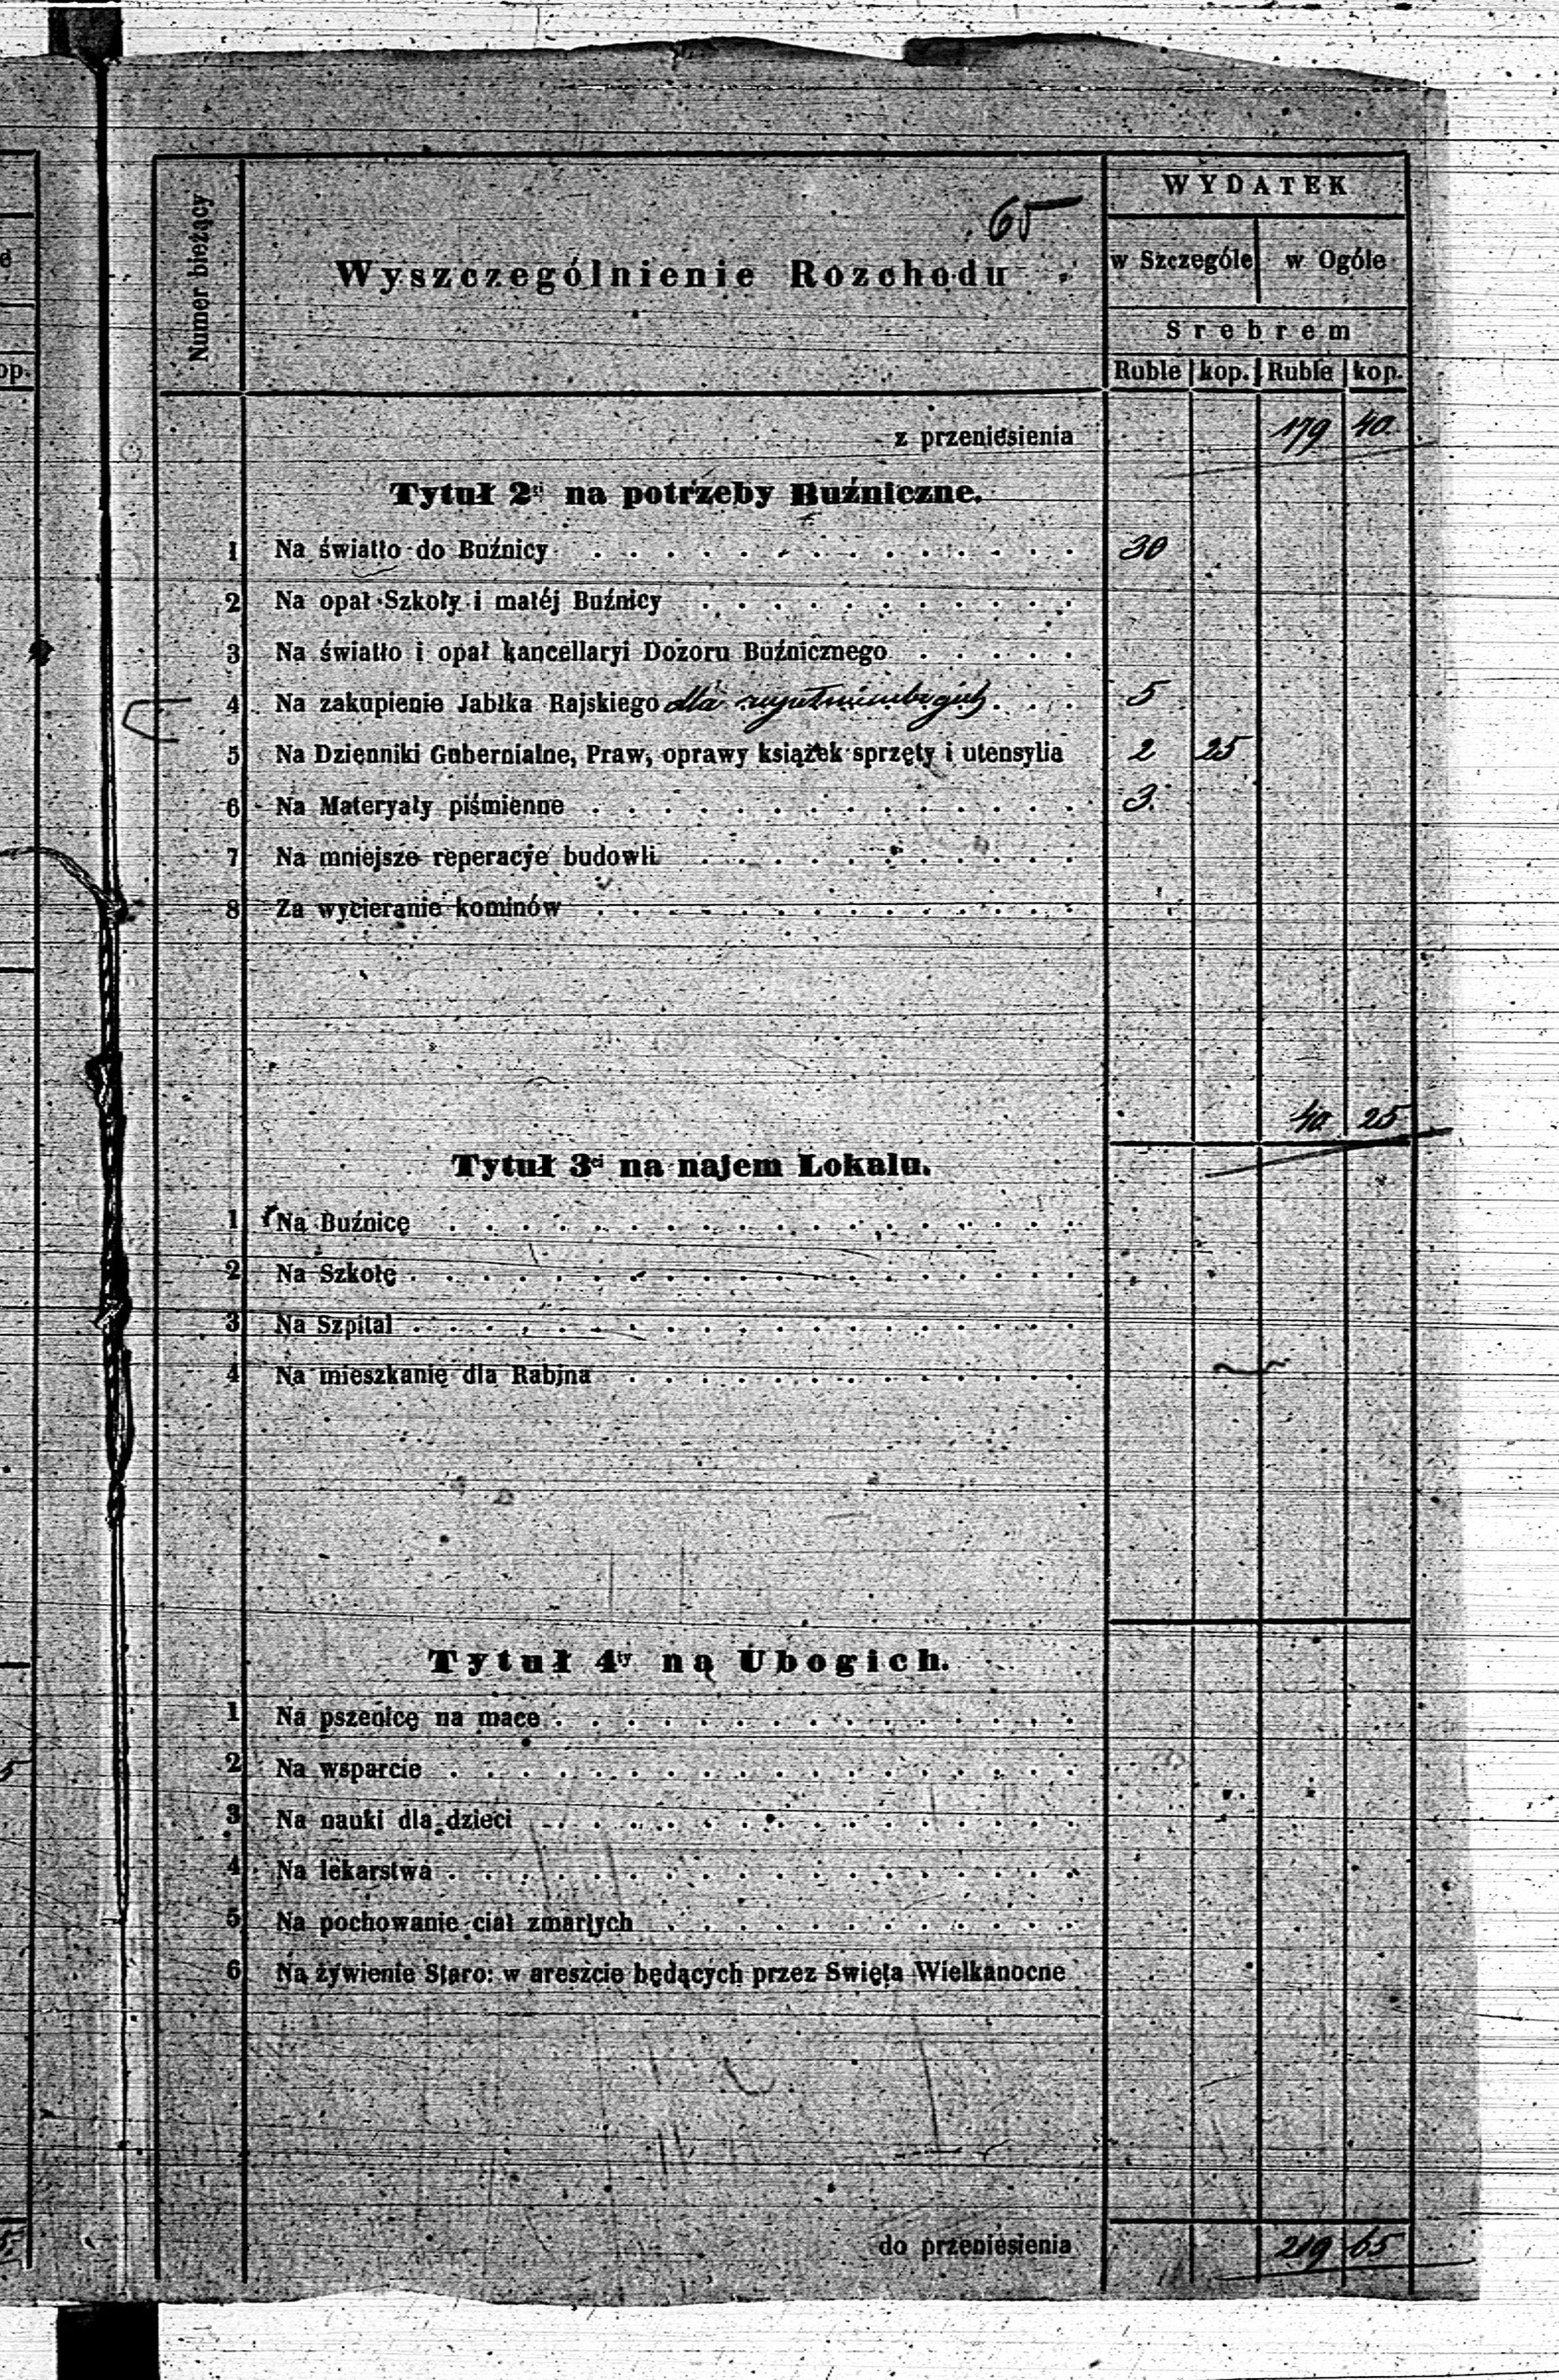 65
Numer bieżący
Wyszczególnienie Rozchodu
WYDATEK
w Szczególe w Ogóle
Srebrem
Ruble kop. Ruble kop.
z przeniesienia 179 40
Tytuł 2gi na potrzeby Buźniczne.
1 Na światło do Buźnicy 30
2 Na opał Szkoły i małéj Buźnicy
3 Na światło i opał kancellaryi Dozoru Buźnicznego
4 Na zakupienie Jabłka Rajskiego dla 5
5 Na Dzienniki Gubernialne, Praw, oprawy książek sprzęty i utensylia 2 25
6 Na Materyały piśmienne 3
7 Na mniejsze reperacye budowli
8 Za wycieranie kominów
40 25
Tytuł 3ci na najem Lokalu.
1 Na Buźnicę
2 Na Szkołę
3 Na Szpital
4 Na mieszkanie dla Rabina
Tytuł 4ty na Ubogich.
1 Na pszenicę na mace
2 Na wsparcie
3 Na nauki dla dzieci
4 Na lekarstwa
5 Na pochowanie ciał zmarłych
6 Na żywienie Staro: w areszcie będących przez Swięta Wielkanocne
do przeniesienia 219 65